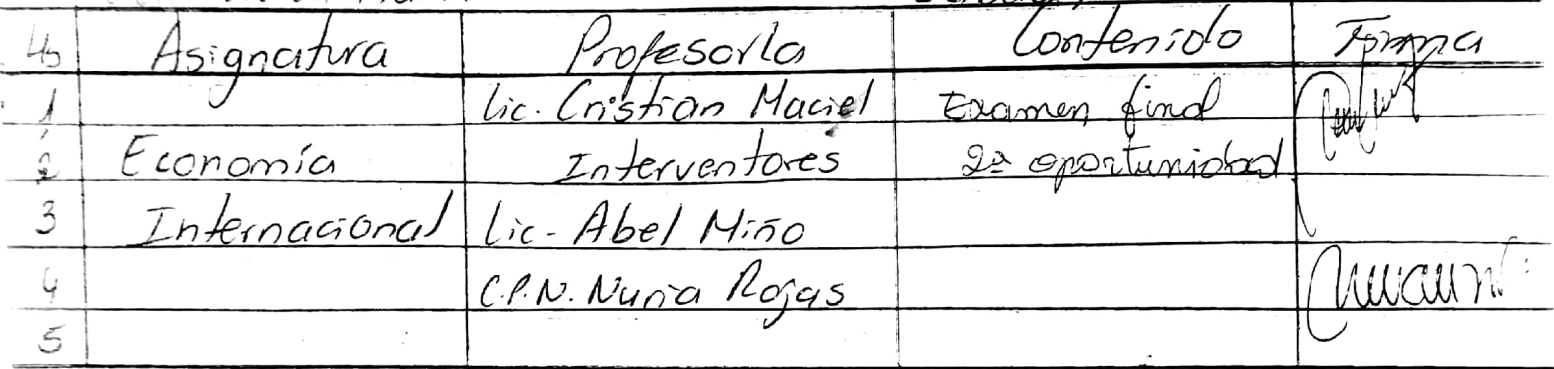 Hs Asignatura Profesor/a Contenido Firma
1 Lic. Cristian Maciel Examen final
2 Economía Interventores 2ª oportunidad
3 Internacional Lic. Abel Miño
4 C.P.N. Nuria Rojas
5